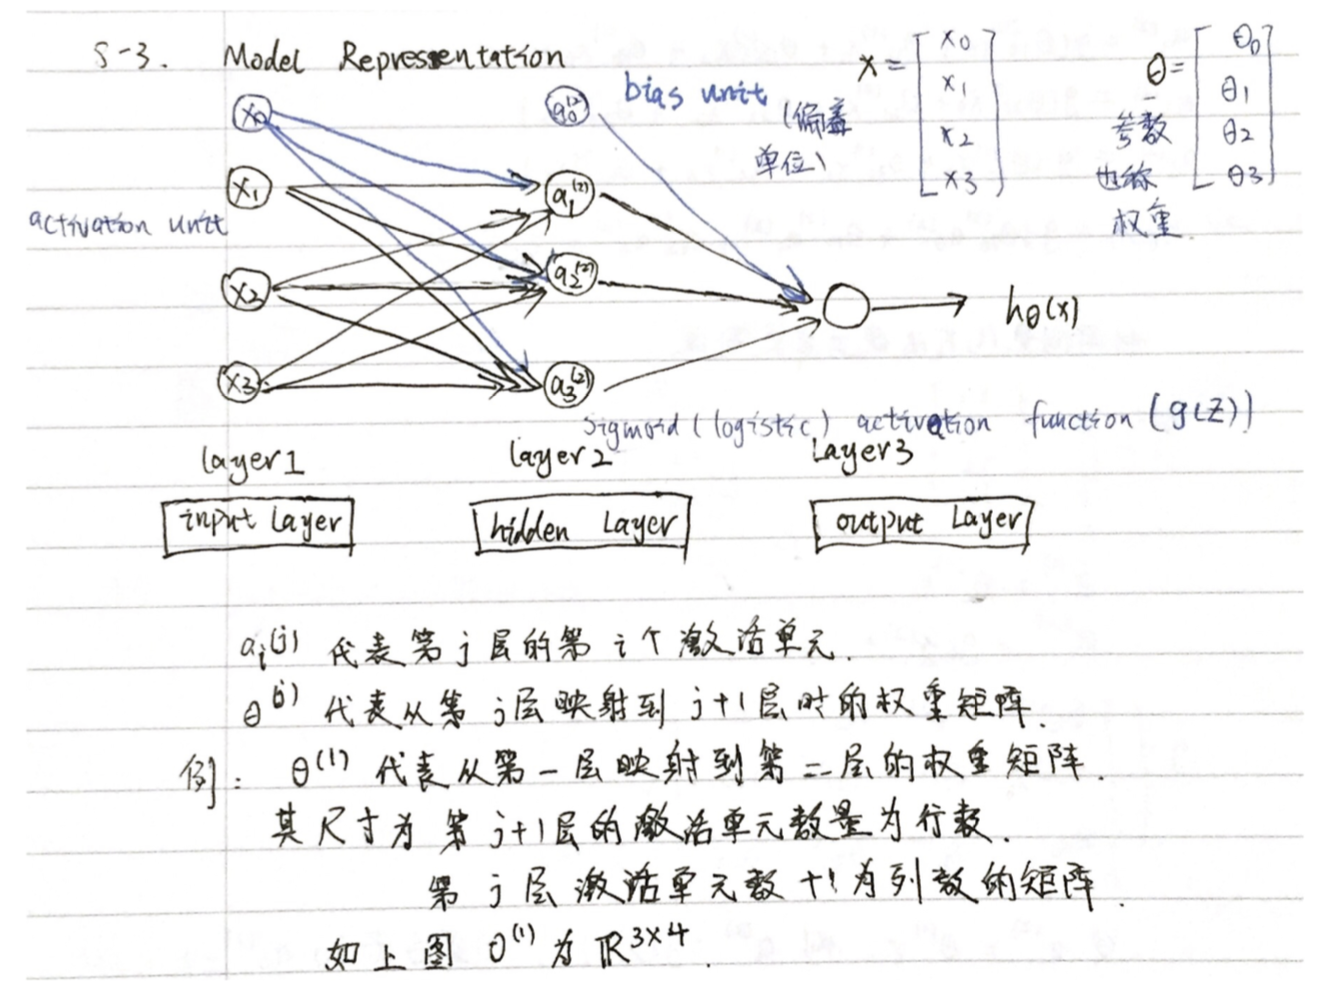 5-3. Model Representation
x0
x1
x2
x3
activation unit
a0(2)
a1(2)
a2(2)
a3(2)
bias unit
(偏差
单位)
x = [x0 x1 x2 x3]
θ = [θ0 θ1 θ2 θ3]
参数
也称
权重.
hθ(x)
sigmoid (logistic) activation function (g(z))
layer1 layer2 Layer3
input Layer hidden Layer output Layer
ai(j) 代表第j层的第i个激活单元.
θ(j) 代表从第j层映射到j+1层时的权重矩阵.
例: θ(1) 代表从第一层映射到第二层的权重矩阵.
其尺寸为 第j+1层的激活单元数量为行数.
第j层激活单元数+1为列数的矩阵.
如上图 θ(1) 为 ℝ3×4.